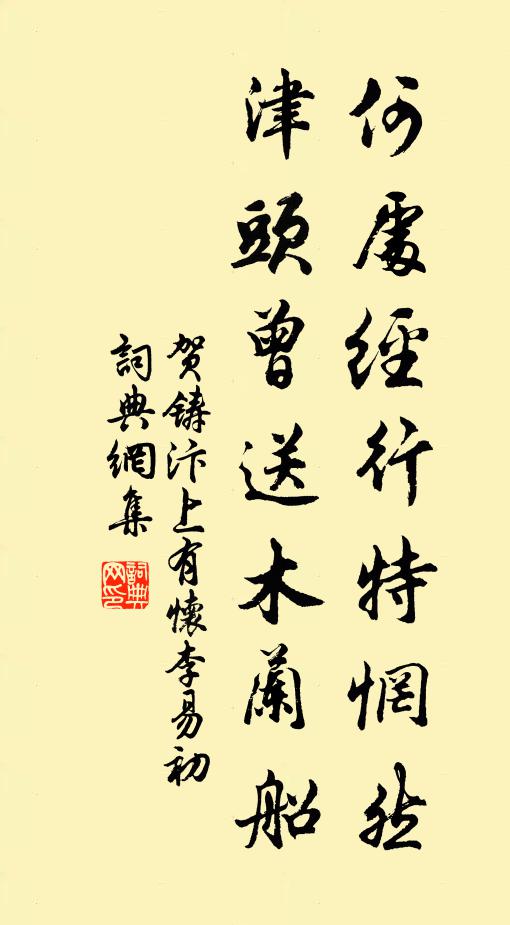 何處經行特惘然
津頭曾送木蘭船
贺鑄汴上有懷李易初
詞典網集
詞典網印